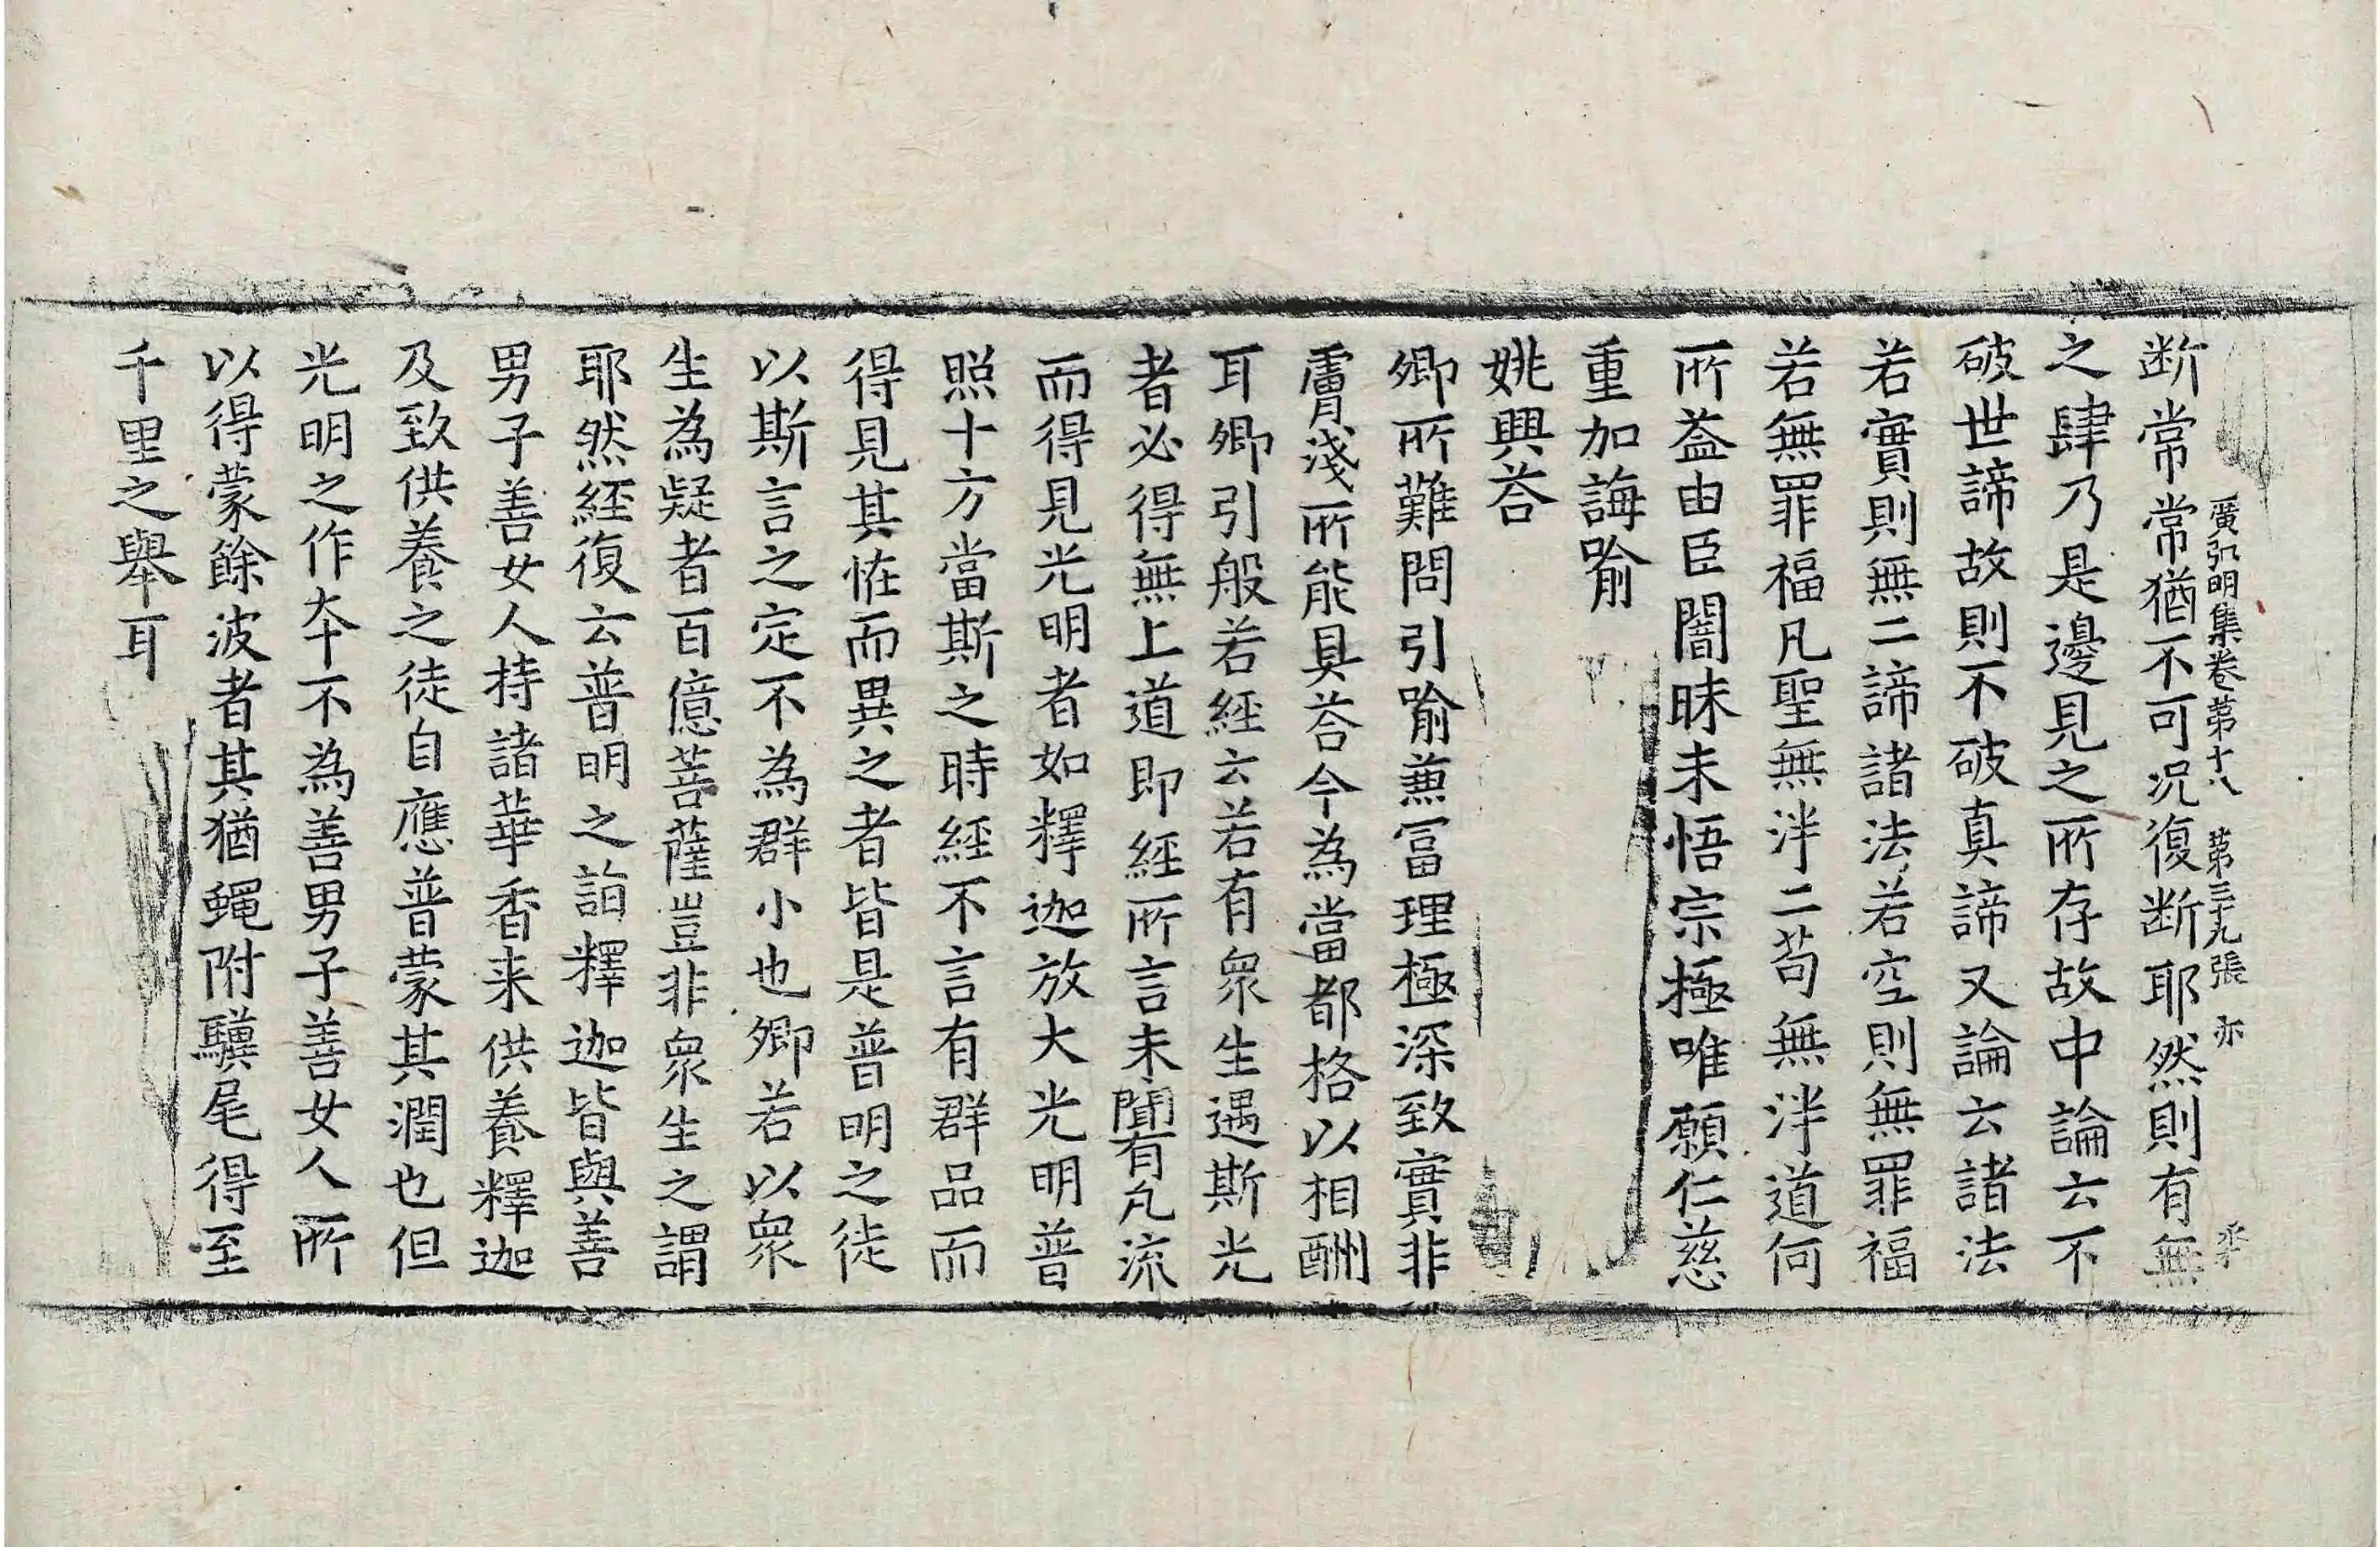 廣弘明集卷第十八 第三十九張 亦
断常常猶不可况復断耶然則有無
之肆乃是邊見之所存故中論云不
破世諦故則不破真諦又論云諸法
若實則無二諦諸法若空則無罪福
若無罪福凡聖無泮二苟無泮道何
所益由臣闇昧未悟宗極唯願仁慈
重加誨喻
姚興荅
卿所難問引喻兼冨理極深致實非
膚淺所能具荅今為當都格以相酬
耳卿引般若經云若有衆生遇斯光
者必得無上道即經所言未聞有凡流
而得見光明者如釋迦放大光明普
照十方當斯之時經不言有群品而
得見其恠而異之者皆是普明之徒
以斯言之定不為群小也卿若以衆
生為疑者百億菩薩豈非衆生之謂
耶然經復云普明之詣釋迦皆與善
男子善女人持諸華香来供養釋迦
及致供養之徒自應普蒙其潤也但
光明之作夲不為善男子善女人所
以得蒙餘波者其猶蝇附驥尾得至
千里之舉耳